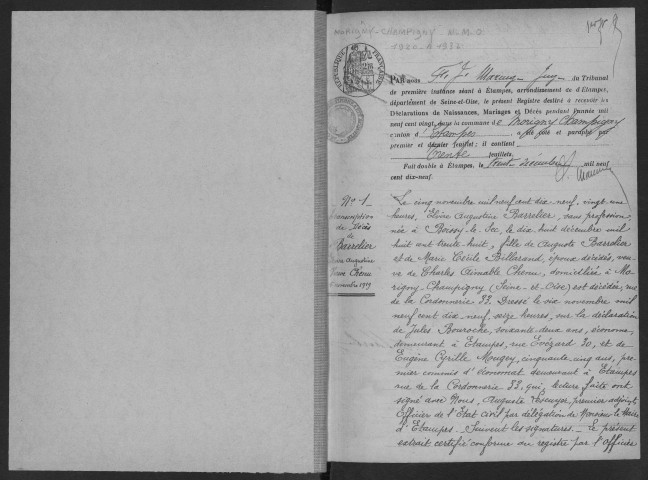 MORIGNY-CHAMPIGNY N.M.D.
1920 à 1932
RÉPUBLIQUE FRANÇAISE
PAR nous du Tribunal
de première instance séant à Étampes, arrondissement de d'Étampes,
département de Seine-et-Oise, le présent Registre destiné à recevoir les
Déclarations de Naissances, Mariages et Décès pendant l'année mil
neuf cent vingt, dans la commune de Morigny Champigny
canton d'Étampes, a été coté et paraphé par
premier et dernier feuillet; il contient
trente feuillets.
Fait double à Étampes, le décembre mil neuf
cent dix-neuf.
No 1
Transcription
de Décès
de
Barrelier
Augustine
Veuve Chenu
novembre 1919
Le cinq novembre mil neuf cent dix neuf, vingt une
heures, Augustine Barrelier, sans profession
née à Boissy-le-Sec, le dix huit décembre mil
huit cent trente huit, fille de Auguste Barrelier
et de Marie Cécile Billerand, époux décédés, veu-
ve de Charles Aimable Chenu, domiciliée à Mo-
rigny-Champigny (Seine-et-Oise) est décédée, rue
de la Cordonnerie 33. Dressé le six novembre mil
neuf cent dix-neuf, seize heures, sur la déclaration
de Jules Bouroche, soixante deux ans, économe,
demeurant à Etampes, rue Evézard 30, et de
Eugène Cyrille Mugry, cinquante cinq ans, pre-
mier commis d'économat demeurant à Etampes
rue de la Cordonnerie 33, qui, lecture faite ont
signé avec Nous, Auguste premier adjoint
Officier de l'Etat civil par délégation de Monsieur le Maire
d'Etampes. Suivent les signatures. Le présent
extrait certifié conforme au registre par l'Officier